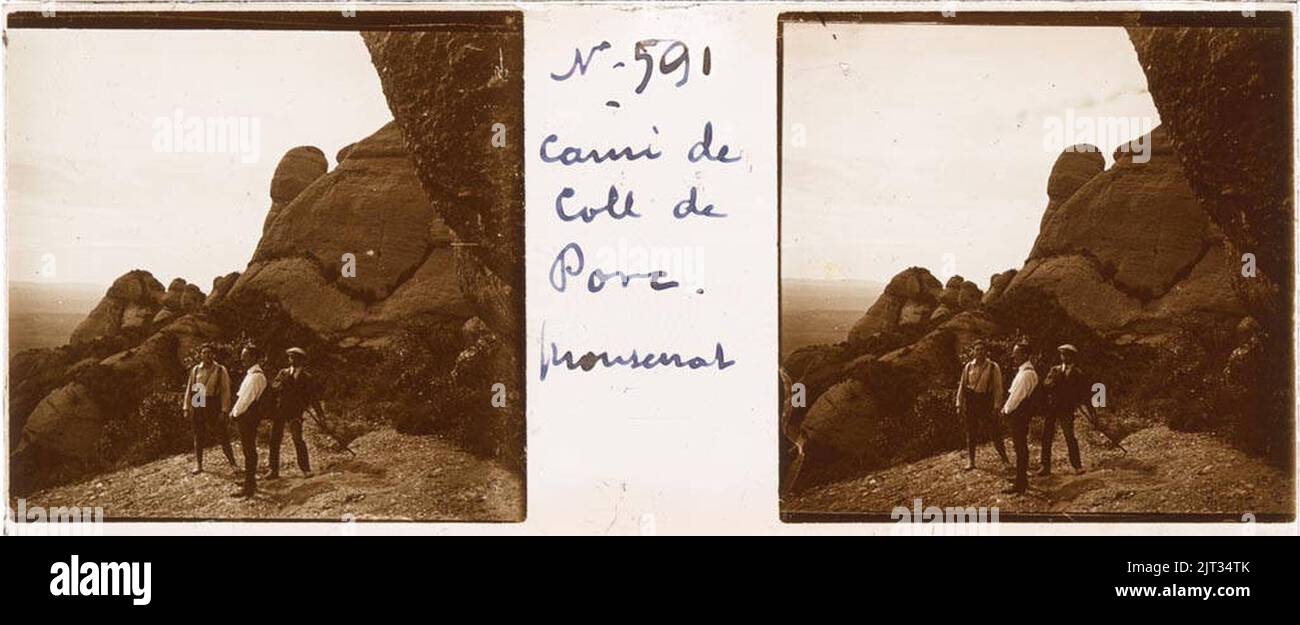 N.- 591
Cami de
Coll de
Porc.
Monserrat
alamy
alamy
Image ID: 2JT34TK
www.alamy.com